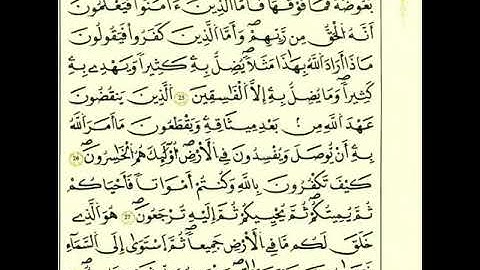 بَعُوضَةٗ فَمَا فَوْقَهَا فَأَمَّا اَ۬لذِينَ ءَامَنُواْ فَيَعْلَمُونَ
أَنَّهُ اُ۬لْحَقُّ مِن رَّبِّهِمْۖ وَأَمَّا اَ۬لذِينَ كَفَرُواْ فَيَقُولُونَ
مَاذَا أَرَادَ اَ۬للَّهُ بِهَٰذَا مَثَلاٗۖ يُضِلُّ بِهِۦ كَثِيراٗ وَيَهْدِے بِهِۦ
كَثِيراٗۖ وَمَا يُضِلُّ بِهِۦ إِلَّا اَ۬لْفَٰسِقِينَ ٢٥ اَ۬لذِينَ يَنقُضُونَ
عَهْدَ اَ۬للَّهِ مِنۢ بَعْدِ مِيثَٰقِهِۦ وَيَقْطَعُونَ مَا أَمَرَ اَ۬للَّهُ
بِهِۦ أَنْ يُّوصَلَ وَيُفْسِدُونَ فِے اِ۬لْأَرْضِۖ أُوْلَٰٓئِكَ هُمُ اُ۬لْخَٰسِرُونَۖ ٢٦
كَيْفَ تَكْفُرُونَ بِاللَّهِ وَكُنتُمْ أَمْوَٰتاٗ فَأَحْيَٰكُمْ
ثُمَّ يُمِيتُكُمْۖ ثُمَّ يُحْيِيكُمْ ثُمَّ إِلَيْهِ تُرْجَعُونَۖ ٢٧ هُوَ اَ۬لذِے
خَلَقَ لَكُم مَّا فِے اِ۬لْأَرْضِ جَمِيعاٗۖ ثُمَّ اَ۪سْتَوَىٰ إِلَى اَ۬لسَّمَآءِ